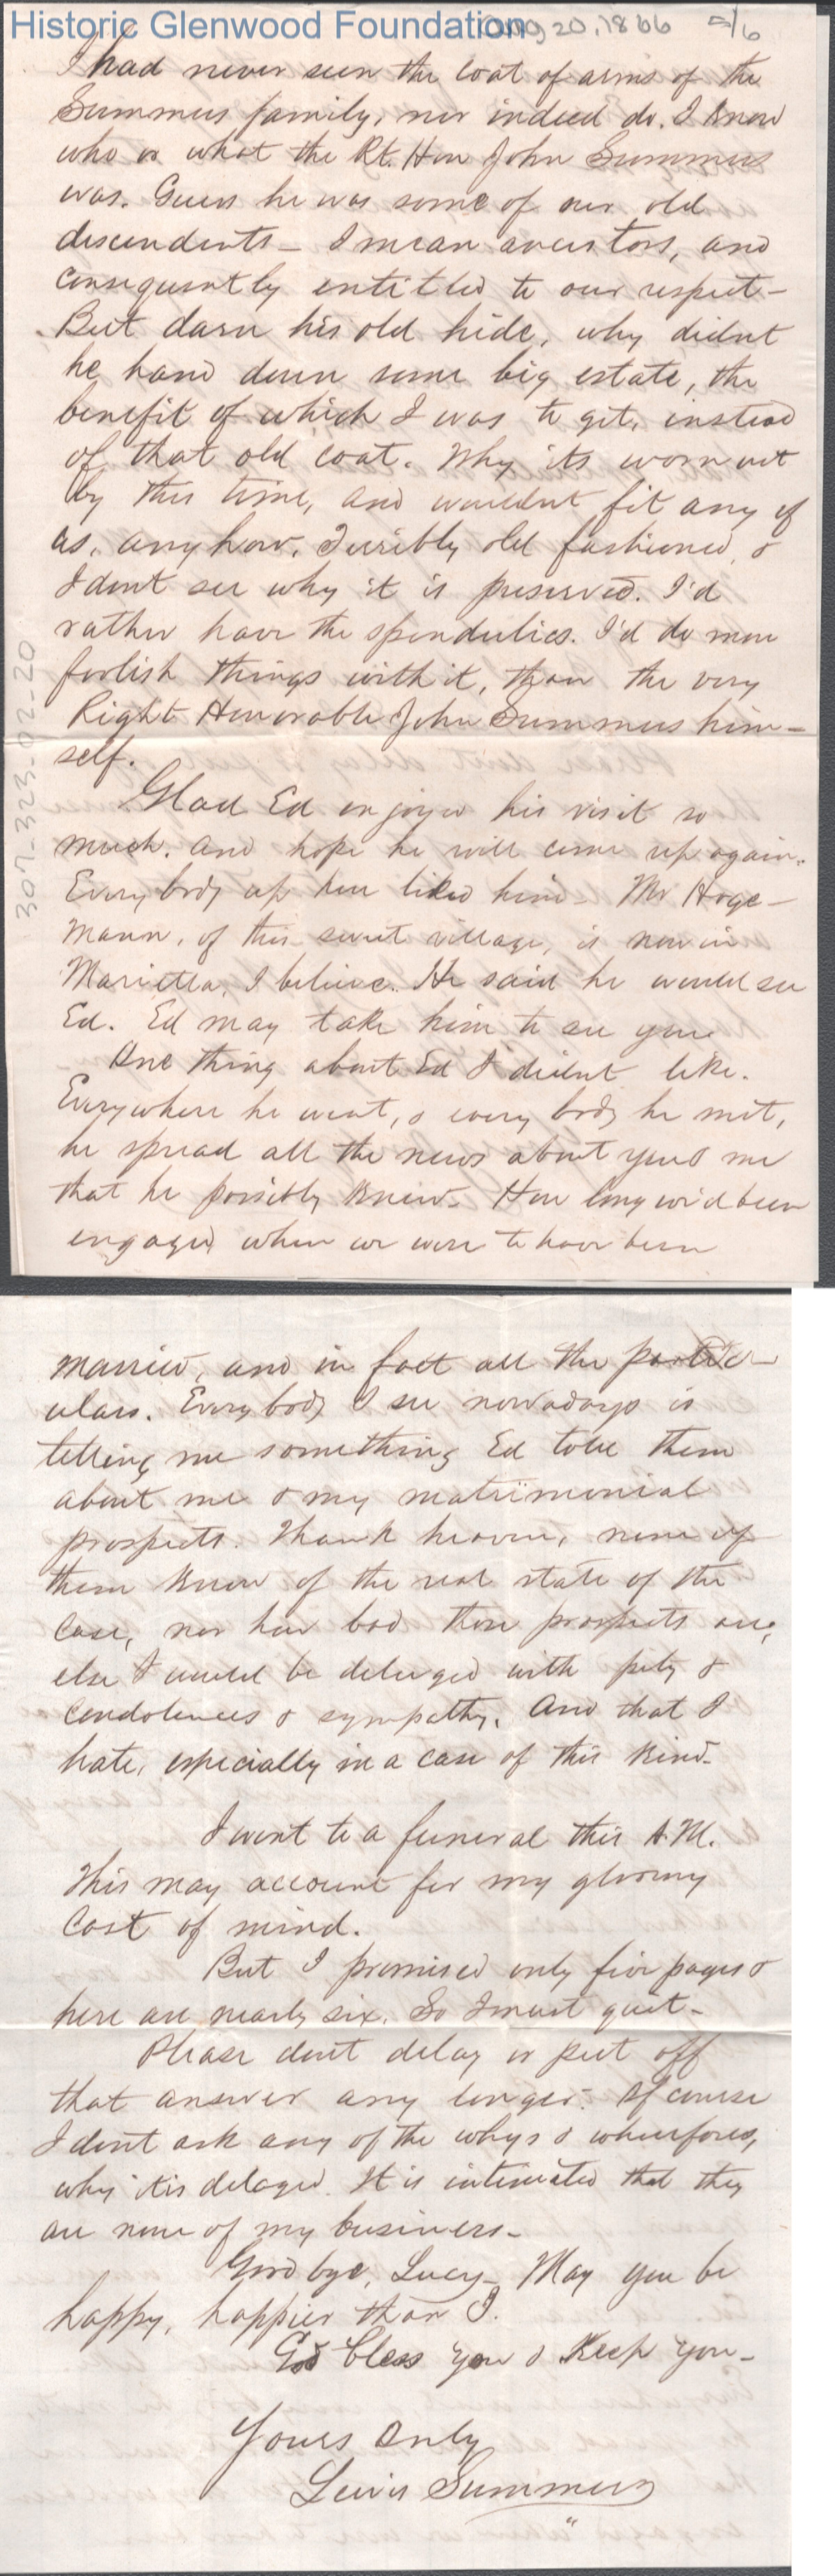 Historic Glenwood Foundation
Aug 20, 1866 5/6
I had never seen the coat of arms of the
Summers family, nor indeed do. I know
who or what the Rt. Hon John Summers
was. Guess he was some of our old
descendents — I mean ancestors, and
consequently entitled to our respect —
But darn his old hide, why didnt
he hand down some big estate, the
benefit of which I was to get, instead
of that old coat. Why its worn out
by this time, and wouldnt fit any of
us, anyhow. Terribly old fashioned, &
I dont see why it is preserved. I'd
rather have the spondulics. I'd do more
foolish things with it, than the very
Right Honorable John Summers him-
self.
Glad Ed enjoyed his visit so
much. And hope he will come up again.
Everybody up here liked him — Mr Hoge-
mann, of this sweet village, is now in
Marietta, I believe. He said he would see
Ed. Ed may take him to see you.
One thing about Ed I didnt like.
Everywhere he went, & every body he met,
he spread all the news about you & me
that he possibly knew — How long we'd been
engaged when we were to have been
307-323-02-20
married, and in fact all the partic-
ulars. Everybody I see nowadays is
telling me something Ed told them
about me & my matrimonial
prospects. Thank heaven, none of
them know of the real state of the
case, nor how bad those prospects are,
else I would be deluged with pity &
condolences & sympathy. And that I
hate, especially in a case of this kind —
I went to a funeral this A.M.
This may account for my gloomy
cast of mind.
But I promised only five pages &
here are nearly six. So I must quit —
Please dont delay or put off
that answer any longer. Of course
I dont ask any of the whys & wherefores,
why 'tis delayed. It is intimated that they
are none of my business —
Good bye, Lucy — May you be
happy, happier than I.
God bless you & keep you —
Yours Only
Lewis Summers